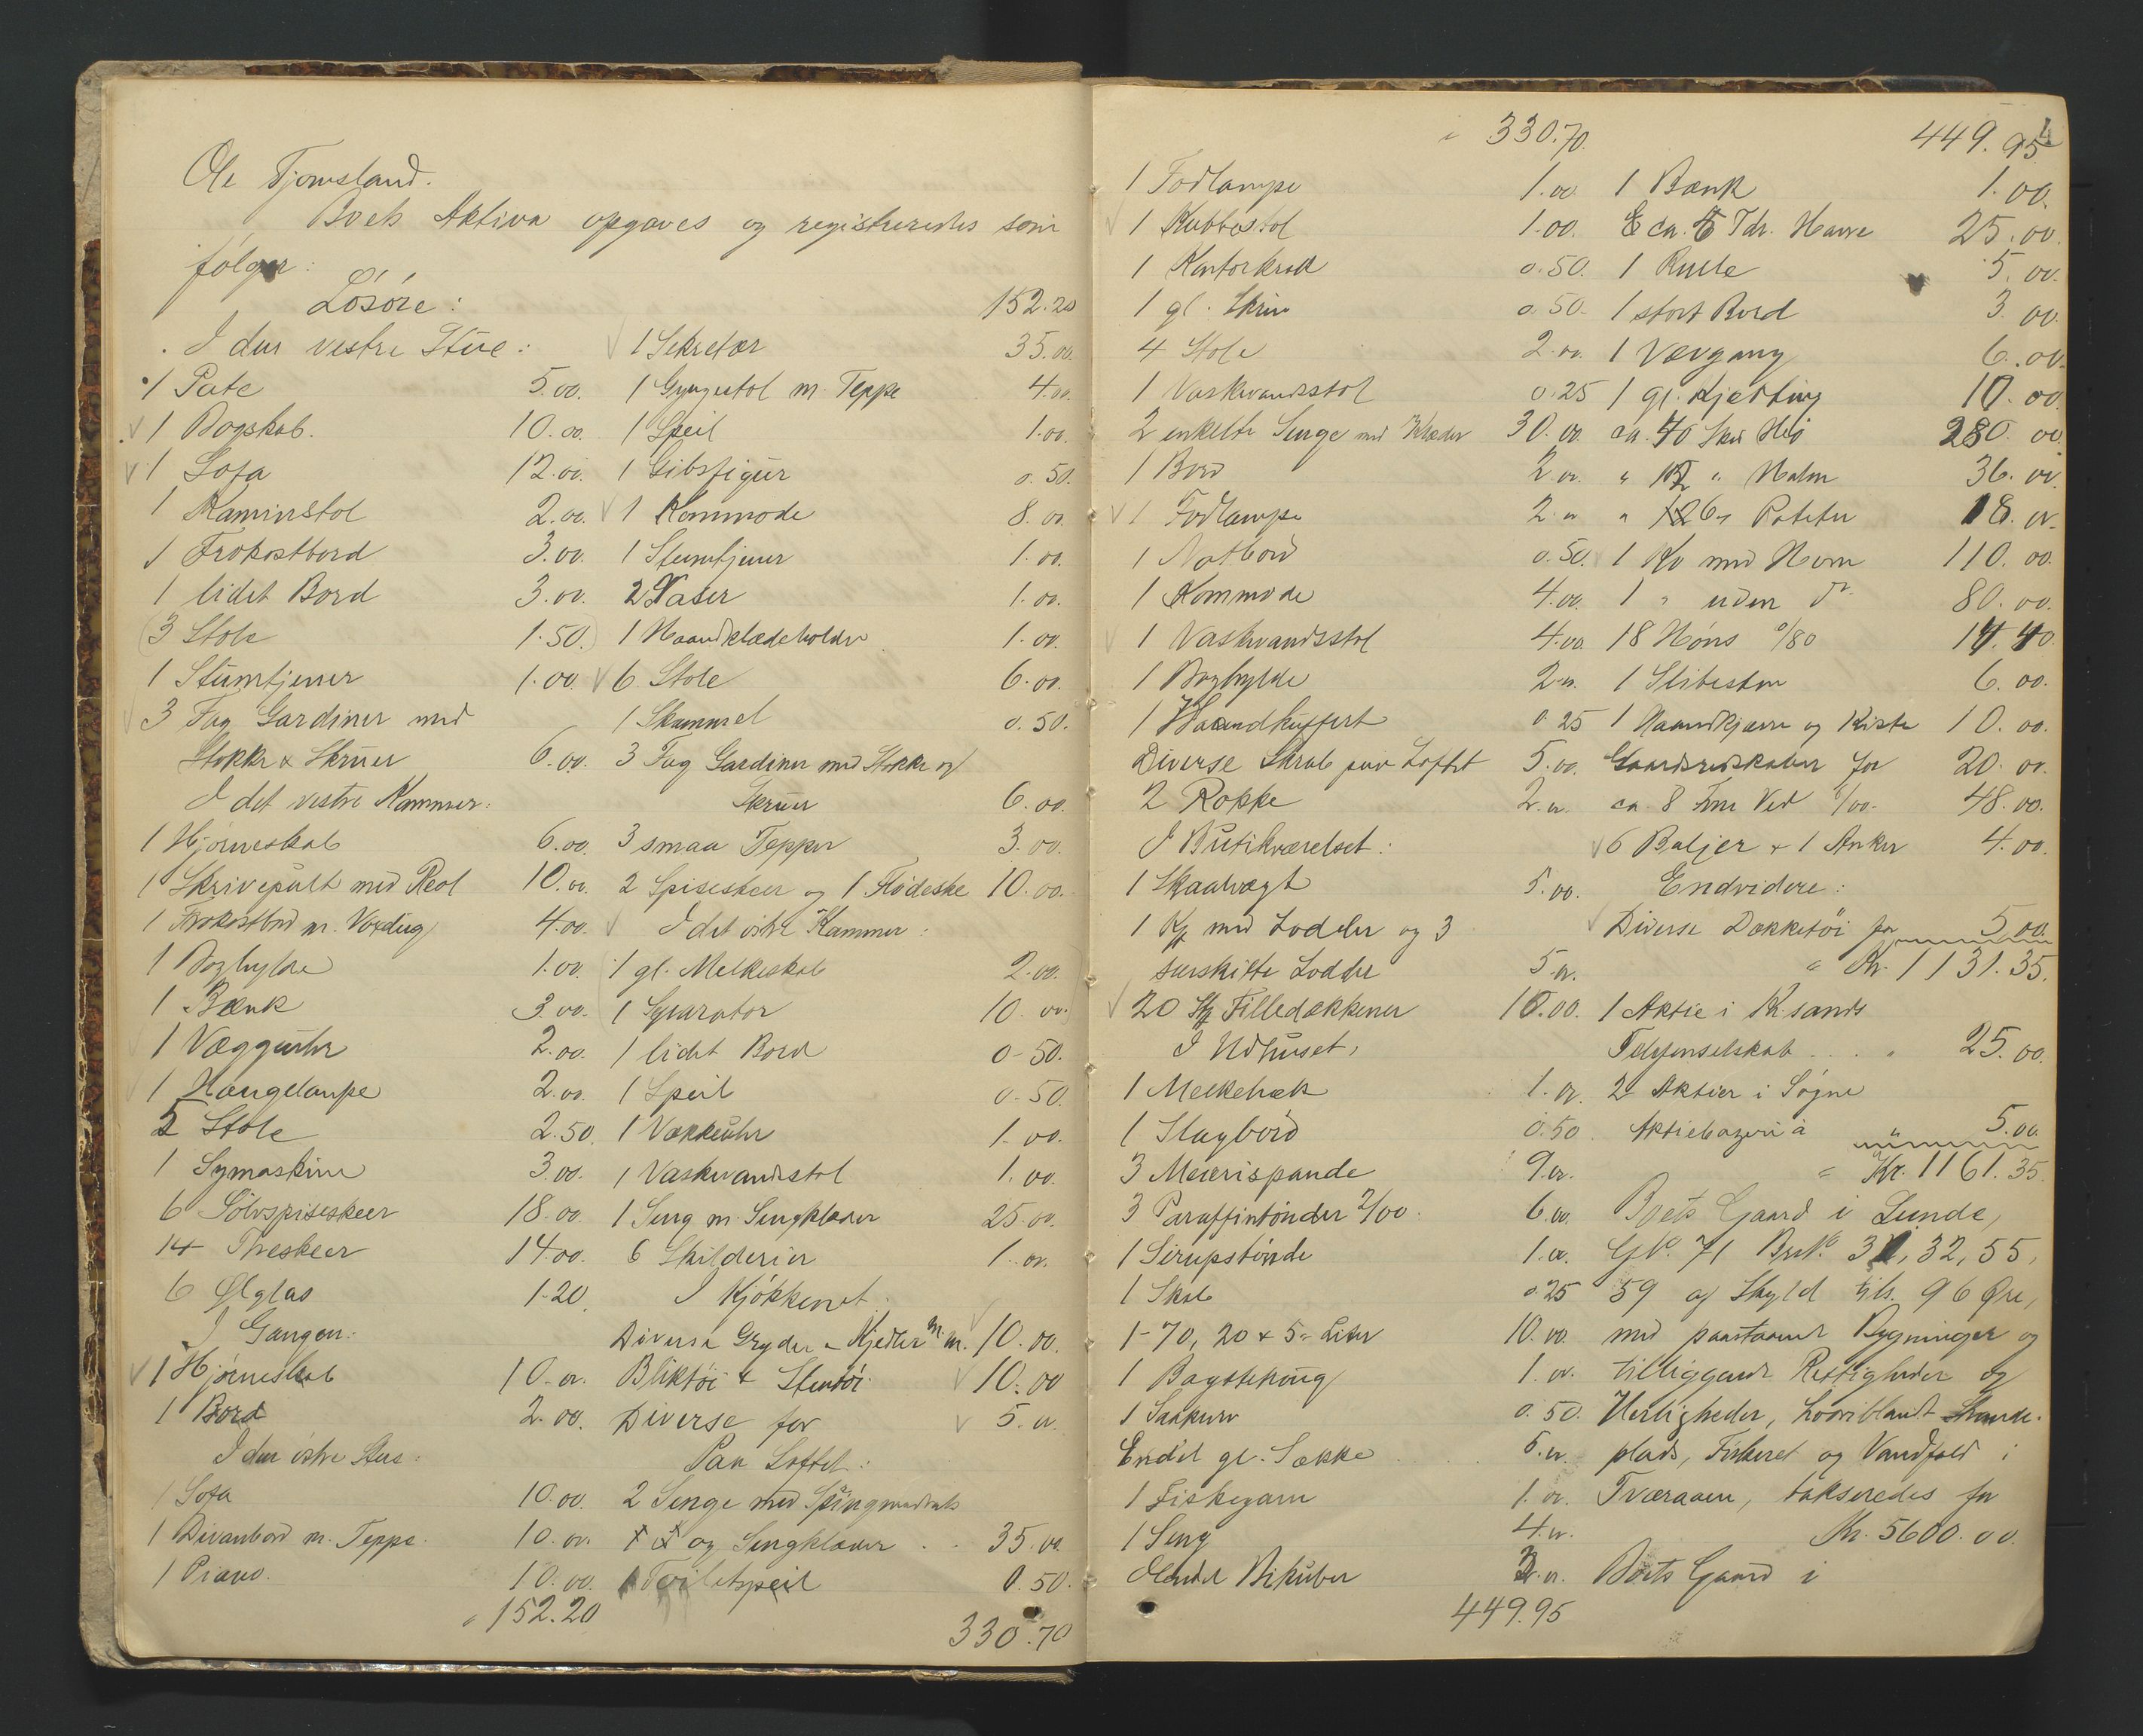 Ole Tjomsland.
Boets Aktiva opgaves og registreredes som
følger:
Løsøre:
I den vestre Stue:
1 Pute 5.00.
1 Bogskab. 10.00.
1 Sofa 12.00.
1 Kaminstol 2.00.
1 Frokostbord 3.00.
1 lidet Bord 3.00.
3 Stole 1.50.
1 Stumtjener 1.00
3 Fag Gardiner med
Stokke & Skruer 6.00.
I det vestre Kammer:
1 Hjørneskab 6.00.
1 Skrivepult med Reol 10.00.
1 Frokostbord m. Voxdug 4.00.
1 Boghylde 1.00.
1 Bænk 3.00.
1 Væggeuhr 2.00.
1 Hængelampe 2.00.
5 Stole 2.50.
1 Symaskine 3.00.
6 Sølvspiseskeer 18.00.
14 Theskeer 14.00.
6 Ølglas 1.20.
I Gangen:
1 Hjørneskab 10.00.
1 Bord 2.00.
I den østre Stue:
1 Sofa 10.00
1 Divanbord m. Teppe. 10.00.
1 Piano. 10.00.
152.20
152.20
1 Sekretær 35.00.
1 Gyngestol m. Teppe 4.00.
1 Speil 1.00.
1 Gibsfigur 0.50.
1 Kommode 8.00.
1 Stumtjener 1.00.
2 Vaser 1.00.
1 Haandklædeholder 1.00.
6 Stole 6.00.
1 Skammel 0.50.
3 Fag Gardiner med Stokke og
Skruer 6.00.
3 smaa Tepper 3.00.
2 Spiseskeer og 1 Flødeske 10.00.
I det østre Kammer:
1 gl. Melkeskab 2.00.
1 Separator 10.00.
1 lidet Bord 0-50.
1 Speil 0-50.
1 Vækkeuhr 1.00.
1 Vaskevandsstol 1.00.
1 Seng m. Sengklæder 25.00.
6 Skilderier 1.00.
I Kjøkkenet:
Diverse Gryder & Kjedler m.m. 10.00.
Bliktøi & Stentøi 10.00
Diverse for 5.00.
Paa Loftet:
2 Senge med Springmadrats
og Sengklæder 35.00.
1 Toiletspeil 0.50.
330.70
330.70.
1 Fodlampe 1.00
1 Kubbestol 1.00.
1 Kontorkrak 0.50.
1 gl. Skrin 0.50.
4 Stole 2.00.
1 Vaskevandsstol 0.25
2 enkelte Senge med Klæder 30.00.
1 Bord 2.00.
1 Fodlampe 2.00
1 Natbord 0.50.
1 Kommode 4.00.
1 Vaskevandsstol 4.00
1 Boghylde 2.00.
1 Haandkuffert 0.25
Diverse Skrab paa Loftet 5.00.
2 Rokke 2.00.
I Butikværelset:
1 Skaalvægt 5.00.
1 med Lodder og 3
særskilte Lodder 5.00.
20 Stk Filledækkener 10.00.
I Udhuset,
1 Melkebæk 1.00.
1 Slagbord 0.50
3 Meierispande 9.00.
3 Paraffintønder 2/00. 6.00.
1 Sirupstønde 1.00.
1 Skab 0.25
1-70, 20 & 5 Liter 10.00.
1 Bagstetrug 1.00.
1 Saakurv 0.50.
Endel gl. Sække 5.00.
1 Fiskegarn 1.00.
1 Seng 4.00.
Endel Bikuber
449.95
449.95
4
1 Bænk 1.00.
ca. 5 Tdr. Havre 25.00.
1 Rulle 5.00.
1 stort Bord 3.00.
1 Vævgang 6.00.
1 gl. Kjetting 10.00.
ca. 40 Skn Høi 280.00.
" 12 " Halm 36.00.
" 6 " Poteter 18.00.
1 Ko med Horn 110.00.
1 " uden do. 80.00.
18 Høns 0/80 14.40.
1 Slibesten 6.00.
1 Haandkjærre og Kiste 10.00.
Gaardsredskaber for 20.00.
ca. 8 Favne Ved 6/00. 48.00.
6 Baljer & 1 Anker 4.00.
Endvidere:
Diverse Dækketøi for 5.00.
Kr. 1131.35.
1 Aktie i Kr.sands
Telefonselskab .... " 25.00.
2 Aktier i Søgne
Aktiebageri à " 5.00.
Kr. 1161.35
Boets Gaard i Lunde,
GNo. 71 BrNo. 31, 32, 55,
59 af Skyld tils. 96 Øre,
med paastaaende Bygninger og
tilliggende Rettigheder og
Herligheder, hvoriblandt Strande.
plads, Fiskeret og Vandfald i
Tværaaen, takseredes for
Kr. 5600.00.
Boets Gaard i